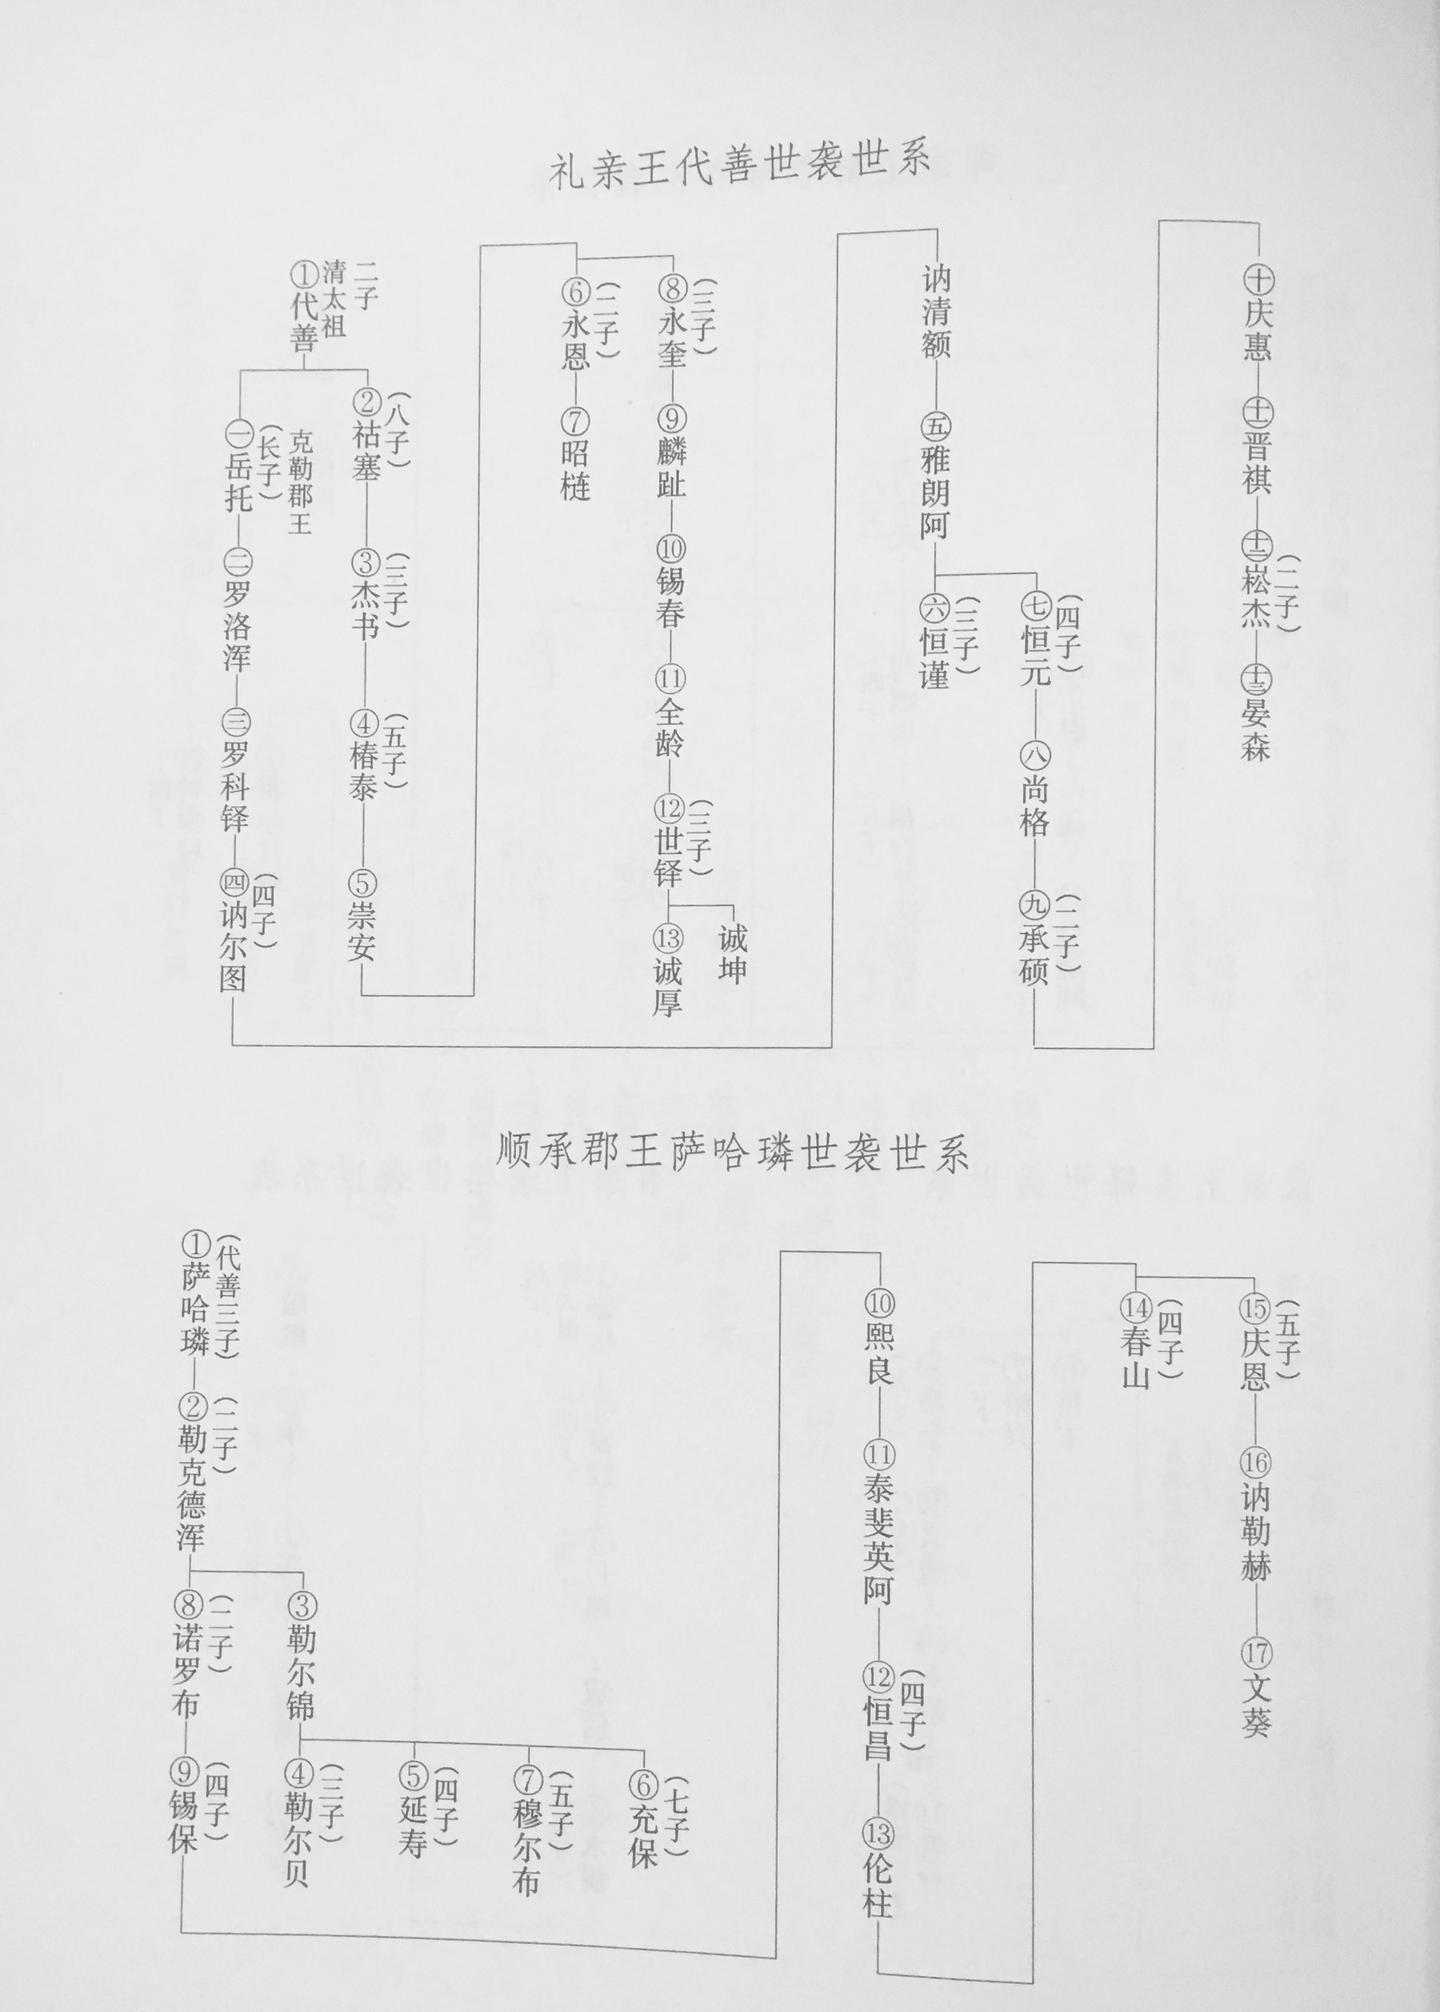 礼亲王代善世袭世系
①代善
清太祖
二子
㊀岳托
(长子)
克勒郡王
㊁罗洛浑
㊂罗科铎
㊃讷尔图
(四子)
②祜塞
(八子)
③杰书
(三子)
④椿泰
(五子)
⑤崇安
⑥永恩
(二子)
⑦昭梿
⑧永奎
(三子)
⑨麟趾
⑩锡春
⑪全龄
⑫世铎
(三子)
⑬诚厚
诚坤
讷清额
㊄雅朗阿
㊅恒谨
(三子)
㊆恒元
(四子)
㊇尚格
㊈承硕
(二子)
㊉庆惠
十一晋祺
十二崧杰
(二子)
十三晏森
顺承郡王萨哈璘世袭世系
①萨哈璘
(代善三子)
②勒克德浑
(二子)
⑧诺罗布
(二子)
⑨锡保
(四子)
③勒尔锦
④勒尔贝
(三子)
⑤延寿
(四子)
⑦穆尔布
(五子)
⑥充保
(七子)
⑩熙良
⑪泰斐英阿
⑫恒昌
(四子)
⑬伦柱
⑭春山
(四子)
⑮庆恩
(五子)
⑯讷勒赫
⑰文葵